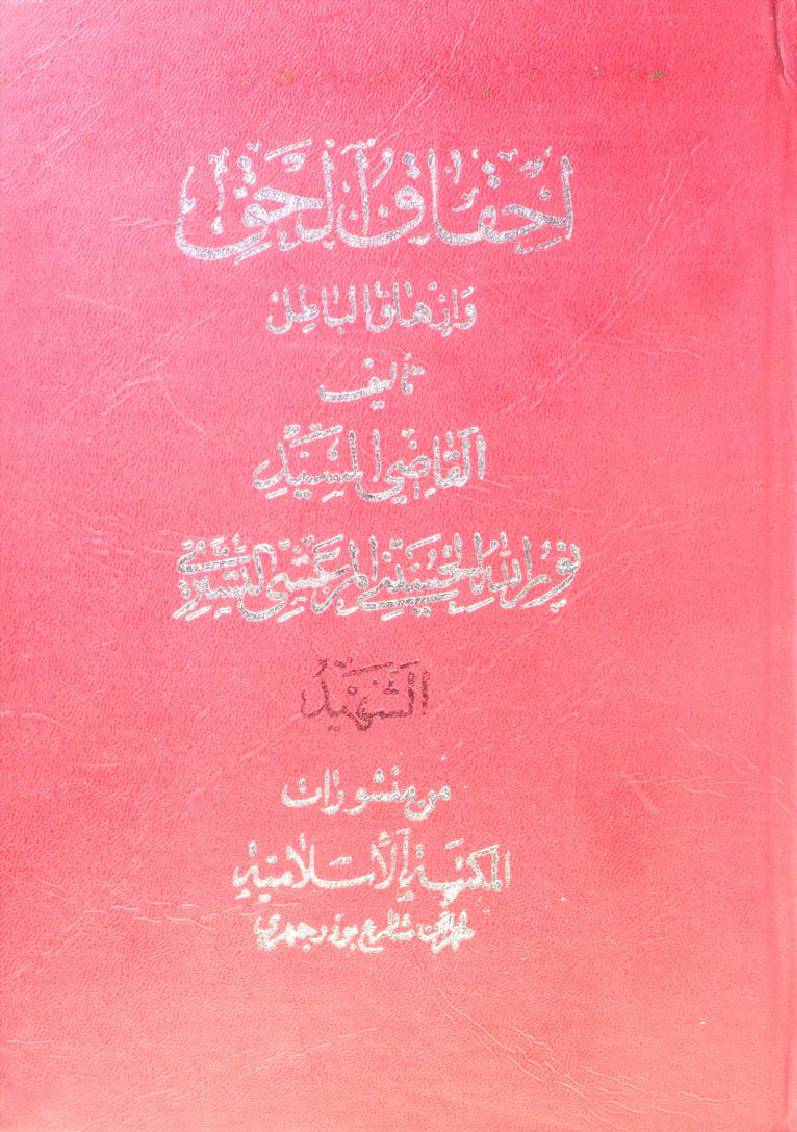 اِحْقَاقُ الْحَقِّ
وَإِزْهَاقُ الْبَاطِلِ
تأليف
القَاضِي السَّيِّدِ
نُورُ اللهِ الحُسَيْنِيِّ المَرْعَشِيِّ التُّسْتَرِيِّ
الشَّهِيدُ
من منشورات
المكتبة الإسلامية
طهران شارع بوذرجمهري